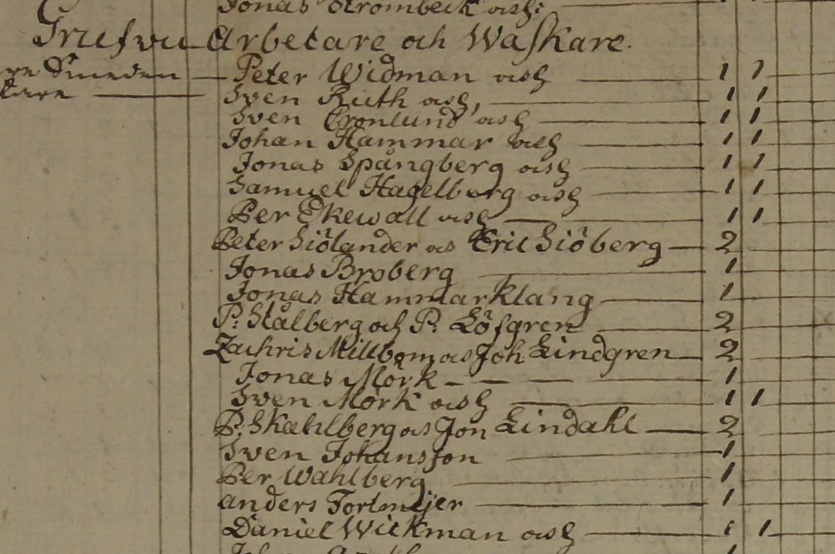 Jonas Strombeck och H:
Grufvu Arbetare och Waskare.
re Smeden — Peter Widman och H — 1 1
kare — Sven Ruth och H, — 1 1
Sven Cronlund och H — 1 1
Johan Hammar och H — 1 1
Jonas Spångberg och H — 1 1
Samuel Hagelberg och H — 1 1
Per Ekewall och H — 1 1
Peter Siölander och Eric Siöberg — 2
Jonas Broberg — 1
Jonas Hammarklang — 1
P: Stålberg och P: Löfgren — 2
Zachris Millbom och Joh Lindgren — 2
Jonas Mörk — — — 1
Sven Mörk och H — 1 1
P: Skahlberg och Jon Lindahl — 2
Sven Johansson — 1
Per Wahlberg — 1
anders — 1
Daniel Wickman och H — 1 1